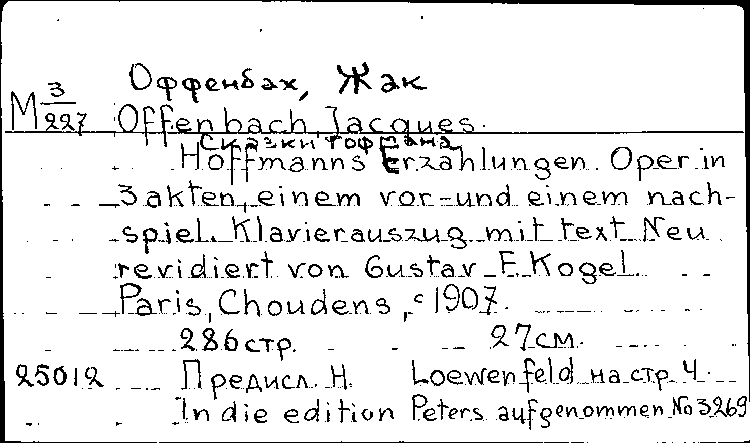 Оффенбах, Жак
М 3/227 Offenbach, Jacques.
Сказки Гофмана
Hoffmanns Erzahlungen. Oper in
3 akten, einem vor-und einem nach-
spiel. Klavierauszug mit text Neu
revidiert von Gustav F. Kogel.
Paris, Choudens, c 1907.
286 стр. 27 см.
25012 Предисл. H. Loewenfeld на стр. 4.
In die edition Peters aufgenommen No 3269